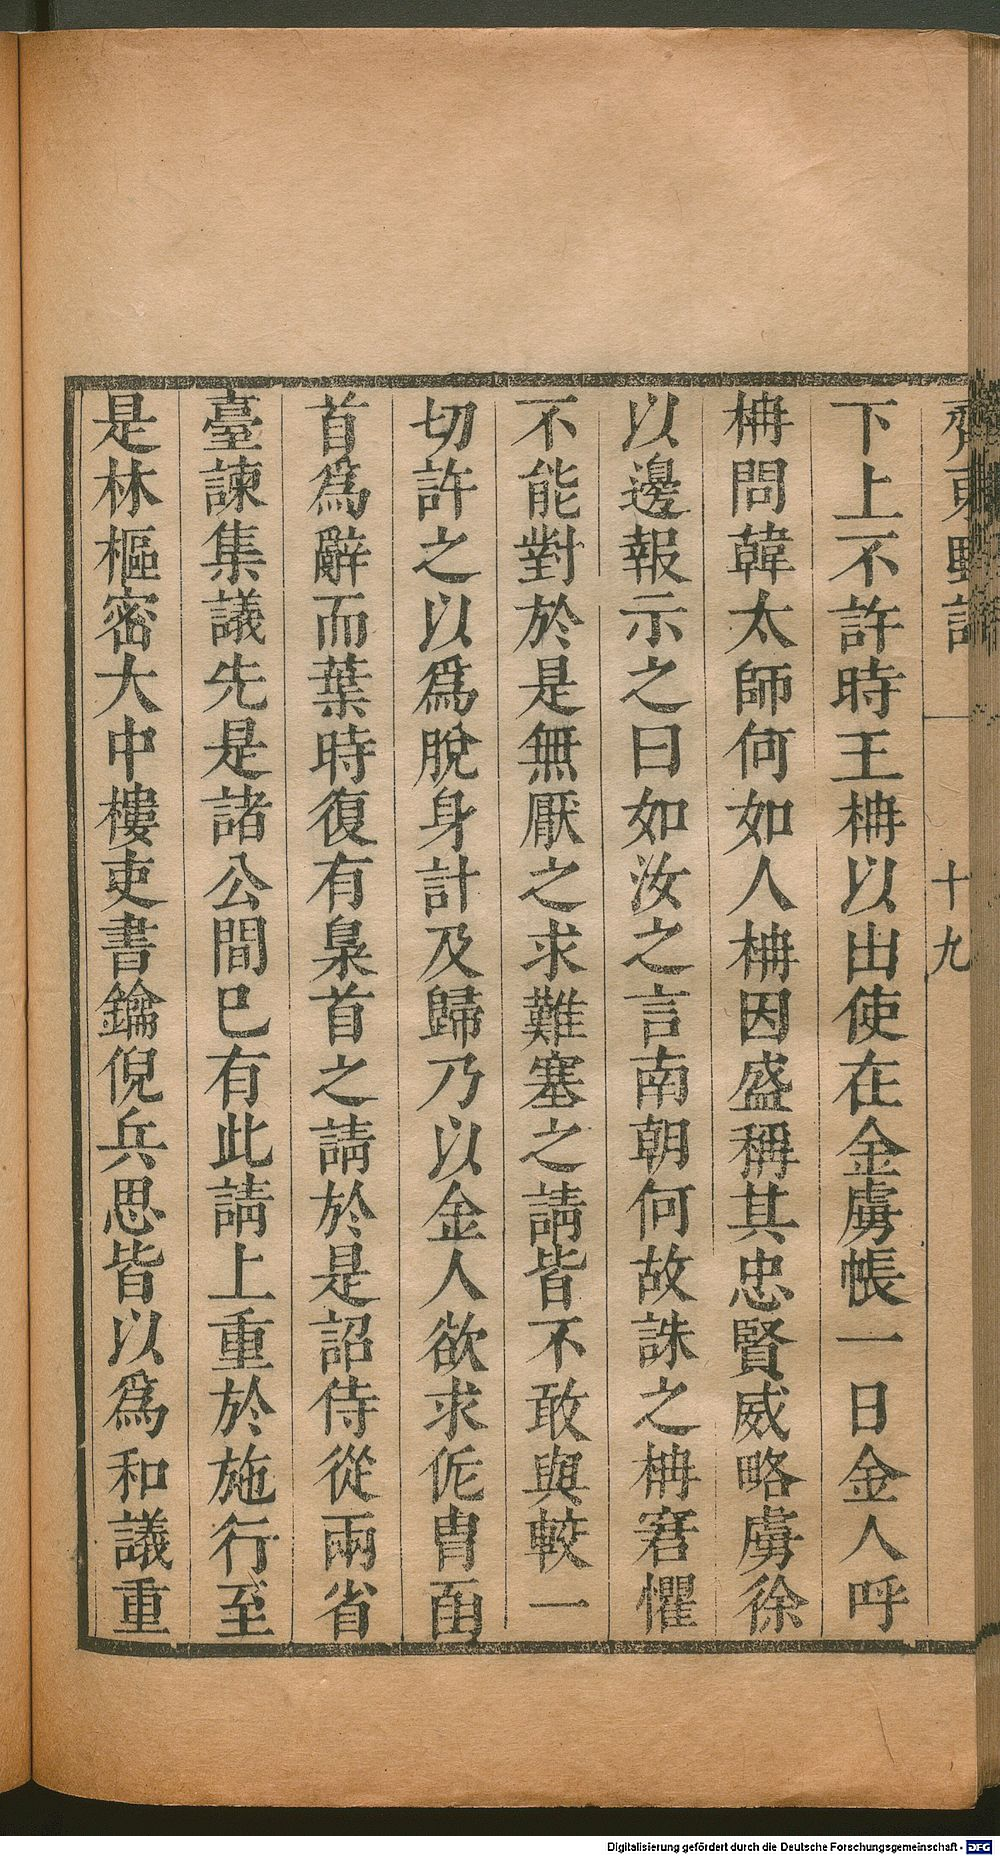 齊東野語
十九
下上不許時王柟以出使在金虜帳一日金人呼
柟問韓太師何如人柟因盛稱其忠賢威略虜徐
以邊報示之曰如汝之言南朝何故誅之柟窘懼
不能對於是無厭之求難塞之請皆不敢與較一
切許之以爲脫身計及歸乃以金人欲求侂胄函
首爲辭而葉時復有梟首之請於是詔侍從兩省
臺諫集議先是諸公間巳有此請上重於施行至
是林樞密大中樓吏書鑰倪兵思皆以爲和議重
Digitalisierung gefördert durch die Deutsche Forschungsgemeinschaft - DFG